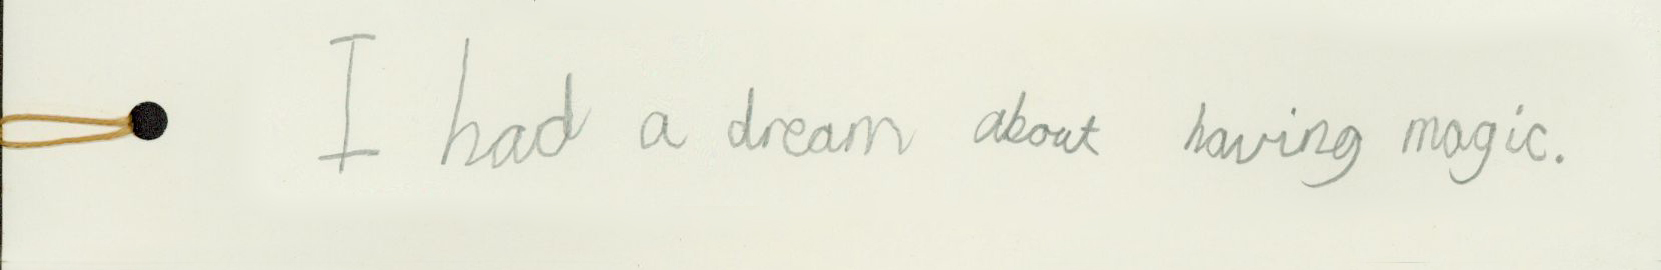 I had a dream about having magic.